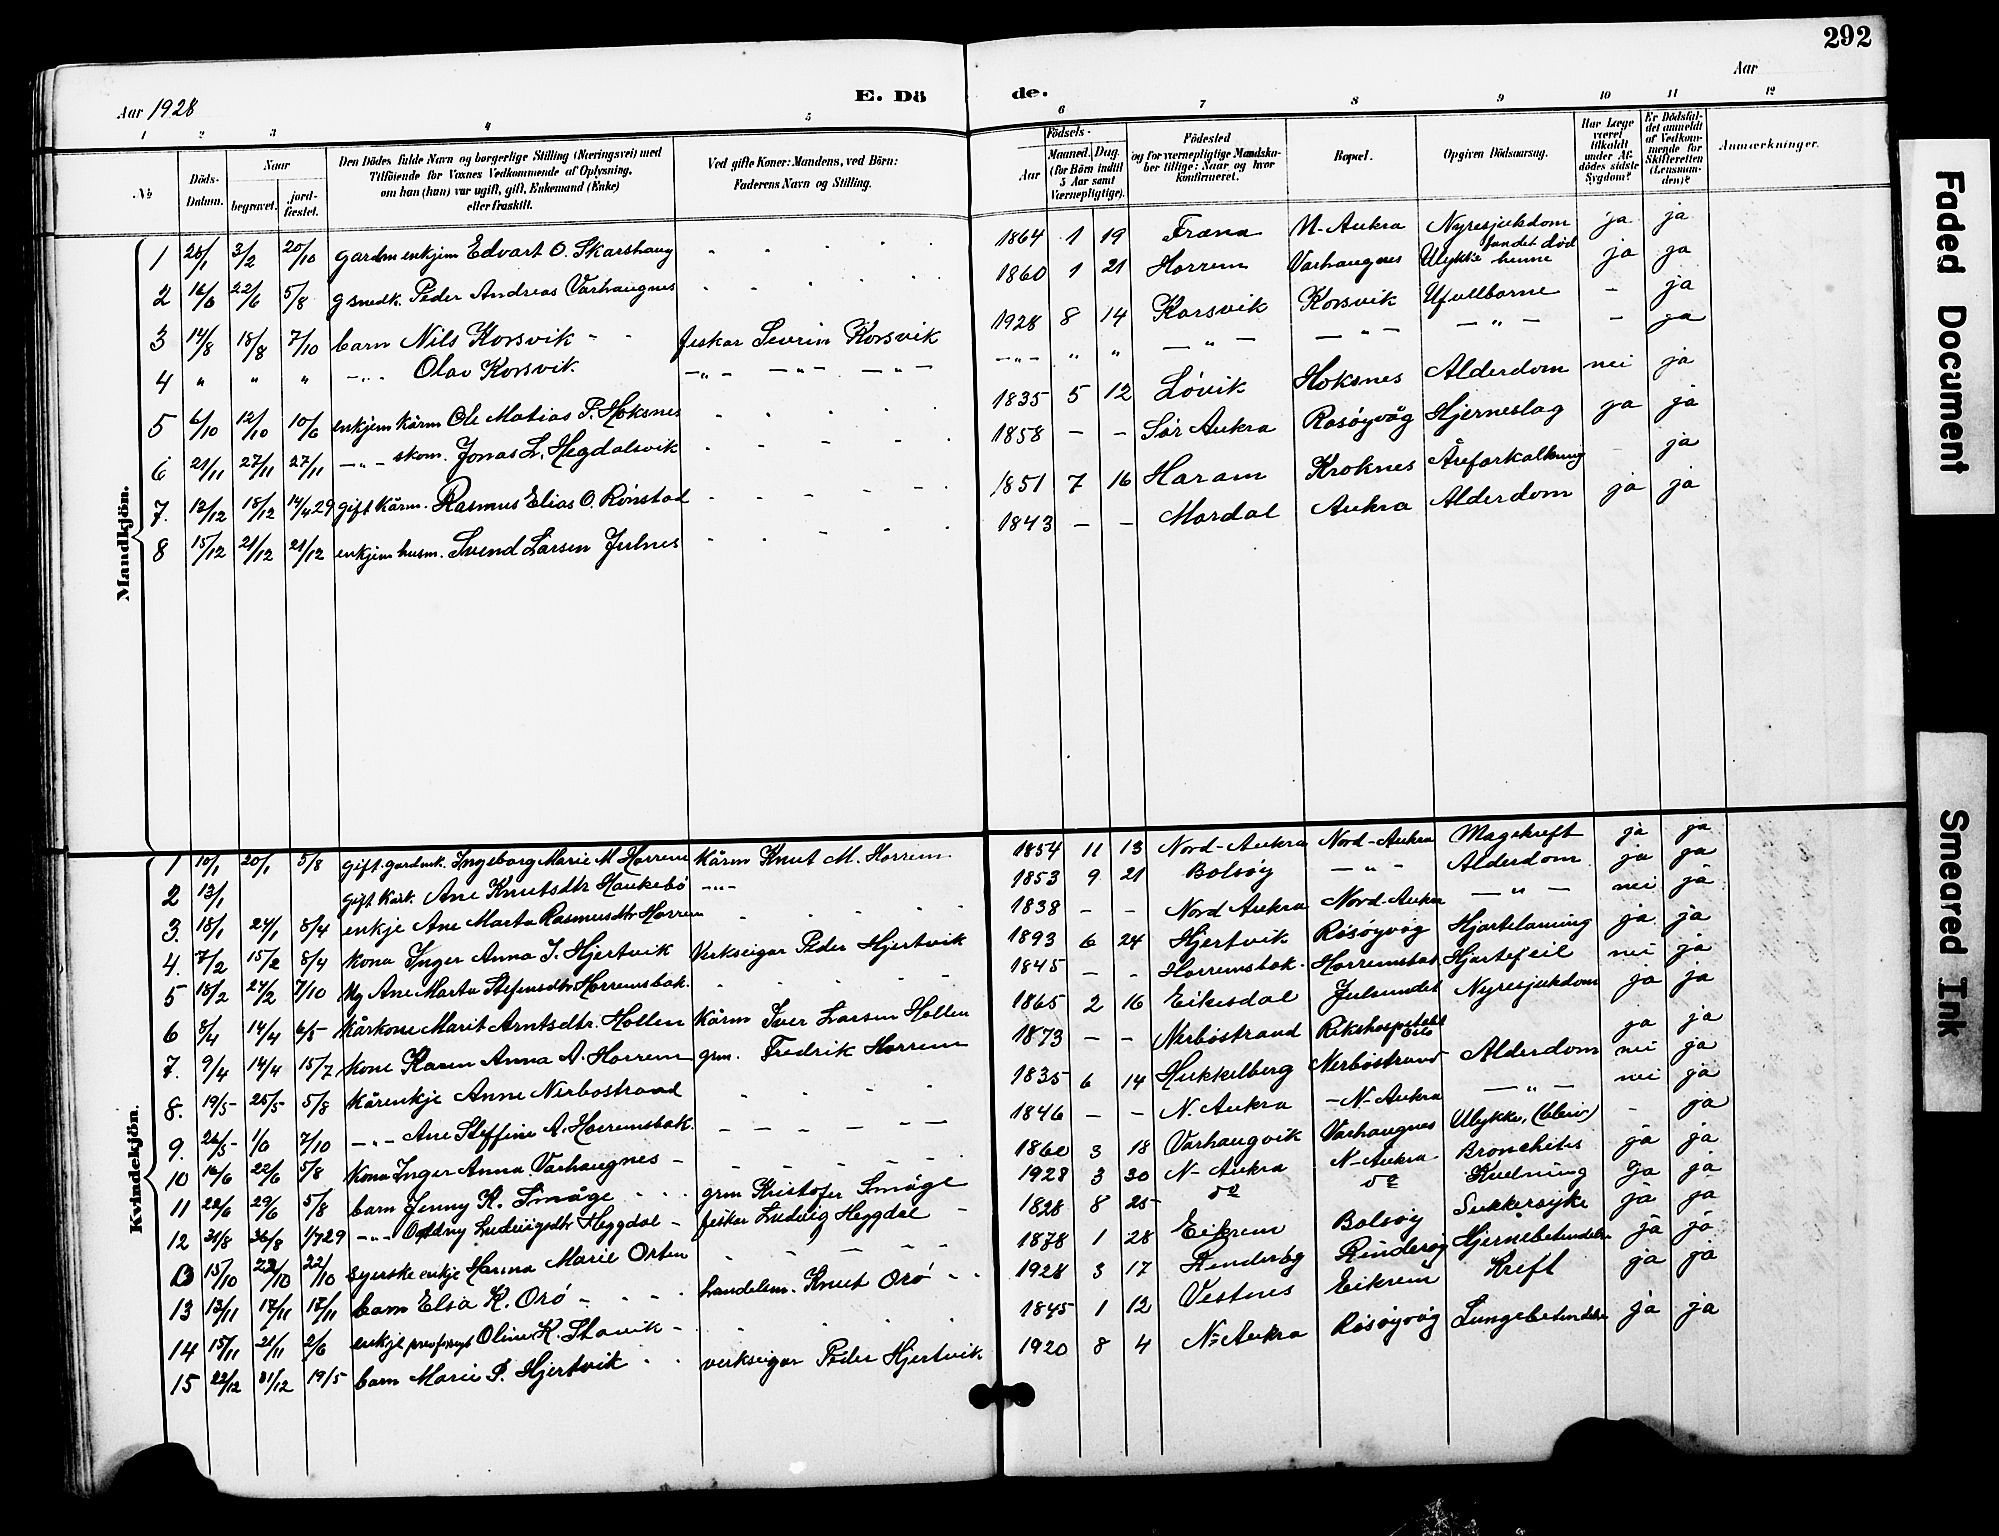 292
Aar 1928
E. Dö de.
Aar
1 2 3 4 5 6 7 8 9 10 11 12
№
Döds-Datum.
Naar begravet. jord-fæstet.
Den Dödes fulde Navn og borgerlige Stilling (Næringsvei) med Tilföiende for Voxnes Vedkommende af Oplysning, om han (hun) var ugift, gift, Enkemand (Enke) eller fraskilt.
Ved gifte Koner: Mandens, ved Börn: Faderens Navn og Stilling.
Födsels-
Aar Maaned. Dag. (for Börn indtil 5 Aar samt Værnepligtige).
Födested og for værnepligtige Mandskaber tillige: Naar og hvor konfirmeret.
Bopæl.
Opgiven Dödsaarsag.
Har Læge været tilkaldt under Afdödes sidste Sygdom?
Er Dödsfaldet anmeldt af Vedkommende for Skifteretten (Lensmanden)?
Anmærkninger.
Mandkjön.
1 26/1 3/2 20/10 gardm enkjem Edvart O. Skarshaug 1864 1 19 Fræna N-Aukra Nyresjukdom ja ja
2 16/6 22/6 5/8 g snedk. Peder Andreas Varhaugnes 1860 1 21 Horrem Varhaugnes Ulykke fundet død henne ja ja
3 14/8 18/8 7/10 barn Nils Korsvik fiskar Severin Korsvik 1928 8 14 Korsvik Korsvik Ufullborne - ja
4 " " " -"- Olav Korsvik -"- -"- -"- -"- " " -"- -"- -"- - ja
5 6/10 12/10 10/6 enkjem kårm Ole Matias P. Hoksnes 1835 5 12 Lövik Hoksnes Alderdom nei ja
6 21/11 27/11 27/11 -"- skom. Jonas L. Hegdalsvik 1858 - - Sör Aukra Rosöyvåg Hjerneslag ja ja
7. 12/12 18/12 14/4 29 gift kårm. Rasmus Elias O. Rönstad 1851 7 16 Haram Kroknes Åreforkalkning ja
8 15/12 21/12 21/12 enkjem husm. Svend Larsen Julnes 1843 - - Mordal Aukra Alderdom ja ja
Kvindekjön.
1 10/1 20/1 5/8 gift gardmk. Ingeborg Marie M Horrem Kårm Knut M. Horrem 1854 11 13 Nord-Aukra Nord-Aukra Magekreft ja ja
2 13/1 gift kårk. Ane Knutsdtr Haukebö -"- 1853 9 21 Bolsöy -"- Alderdom ja ja
3. 18/1 24/1 8/4 enkje Ane Marta Rasmusdtr Horrem 1838 - - Nord Aukra Nord-Aukra -"- nei ja
4. 7/2 15/2 8/4 kona Inger Anna J. Hjertvik Verkseigar Peder Hjertvik 1893 6 24 Hjertvik Rösöyvåg Hjartelaming ja ja
5 18/2 24/2 7/10 Ug Ane Marta Stefensdtr Horremsbak. 1845 - - Horremsbak. Horremsbak Hjartefeil nei ja
6 8/4 14/4 6/5 kårkone Marit Arntsdtr. Hollen Kårm Iver Larsen Hollen 1865 2 16 Eikesdal Julsundet Nyresjukdom ja ja
7. 9/4 14/4 15/7 kone Karen Anna A. Horrem grm. Fredrik Horrem 1873 - - Nerböstrand Rikshospitalet Oslo ja ja
8. 19/5 25/5 5/8 kårenkje Anne Nerbostrand 1835 6 14 Hukkelberg Nerböstrand Alderdom nei ja
9. 26/5 1/6 7/10 -"- Ane Steffine A. Horremsbak. 1846 - - N. Aukra -N-Aukra -"- nei ja
10 16/6 22/6 5/8 Kona Inger Anna Varhaugnes 1860 3 18 Varhaugvik Varhaugnes Ulykke, - ja
11 22/6 29/6 5/8 barn Jenny K. Småge grm Kristofer Småge 1928 3 30 N-Aukra N-Aukra Bronchites ja ja
12 31/8 1/7 29 -"- Oddny Ludvigsdtr Heggdal fiskar Ludvig Heggdal 1828 8 25 do do Kvelning ja ja
15/10 22/10 22/10 syerske enkje Hanna Marie Orten 1878 1 28 Eikrem Bolsöy Sukkersyke ja ja
13 13/11 17/11 17/11 barn Elsa K. Orö handelsm. Knut Orö 1928 3 17 Rinderöy Rinderöy Hjernebetendelse ja ja
14 15/11 21/11 2/6 enkje Oline K. Stavik 1845 1 12 Vestnes Eikrem Kreft ja ja
15 22/12 31/12 19/5 barn Marie P. Hjertvik verkseigar Peder Hjertvik 1920 8 4 N-Aukra Rösöyvåg Lungebetendelse ja ja
Faded Document
Smeared Ink